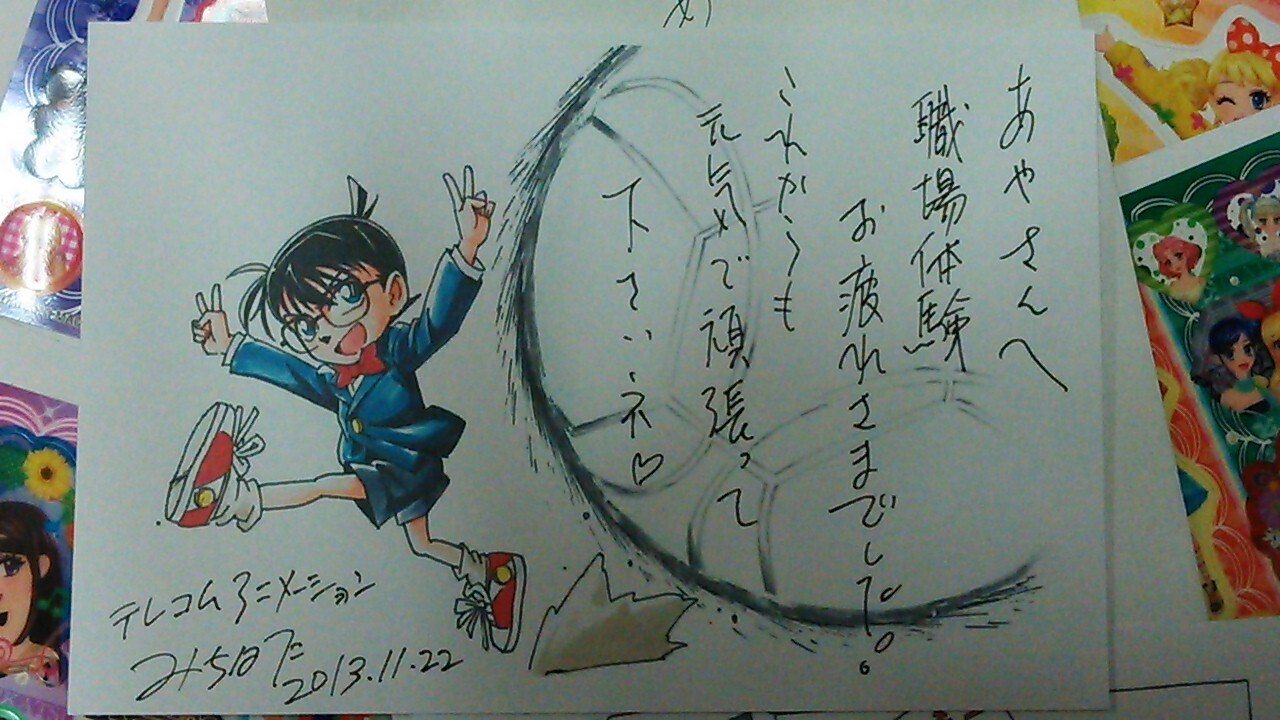 あやさんへ
職場体験
お疲れさまでした。
これからも
元気で頑張って
下さいネ♡
テレコムアニメーション
2013.11.22